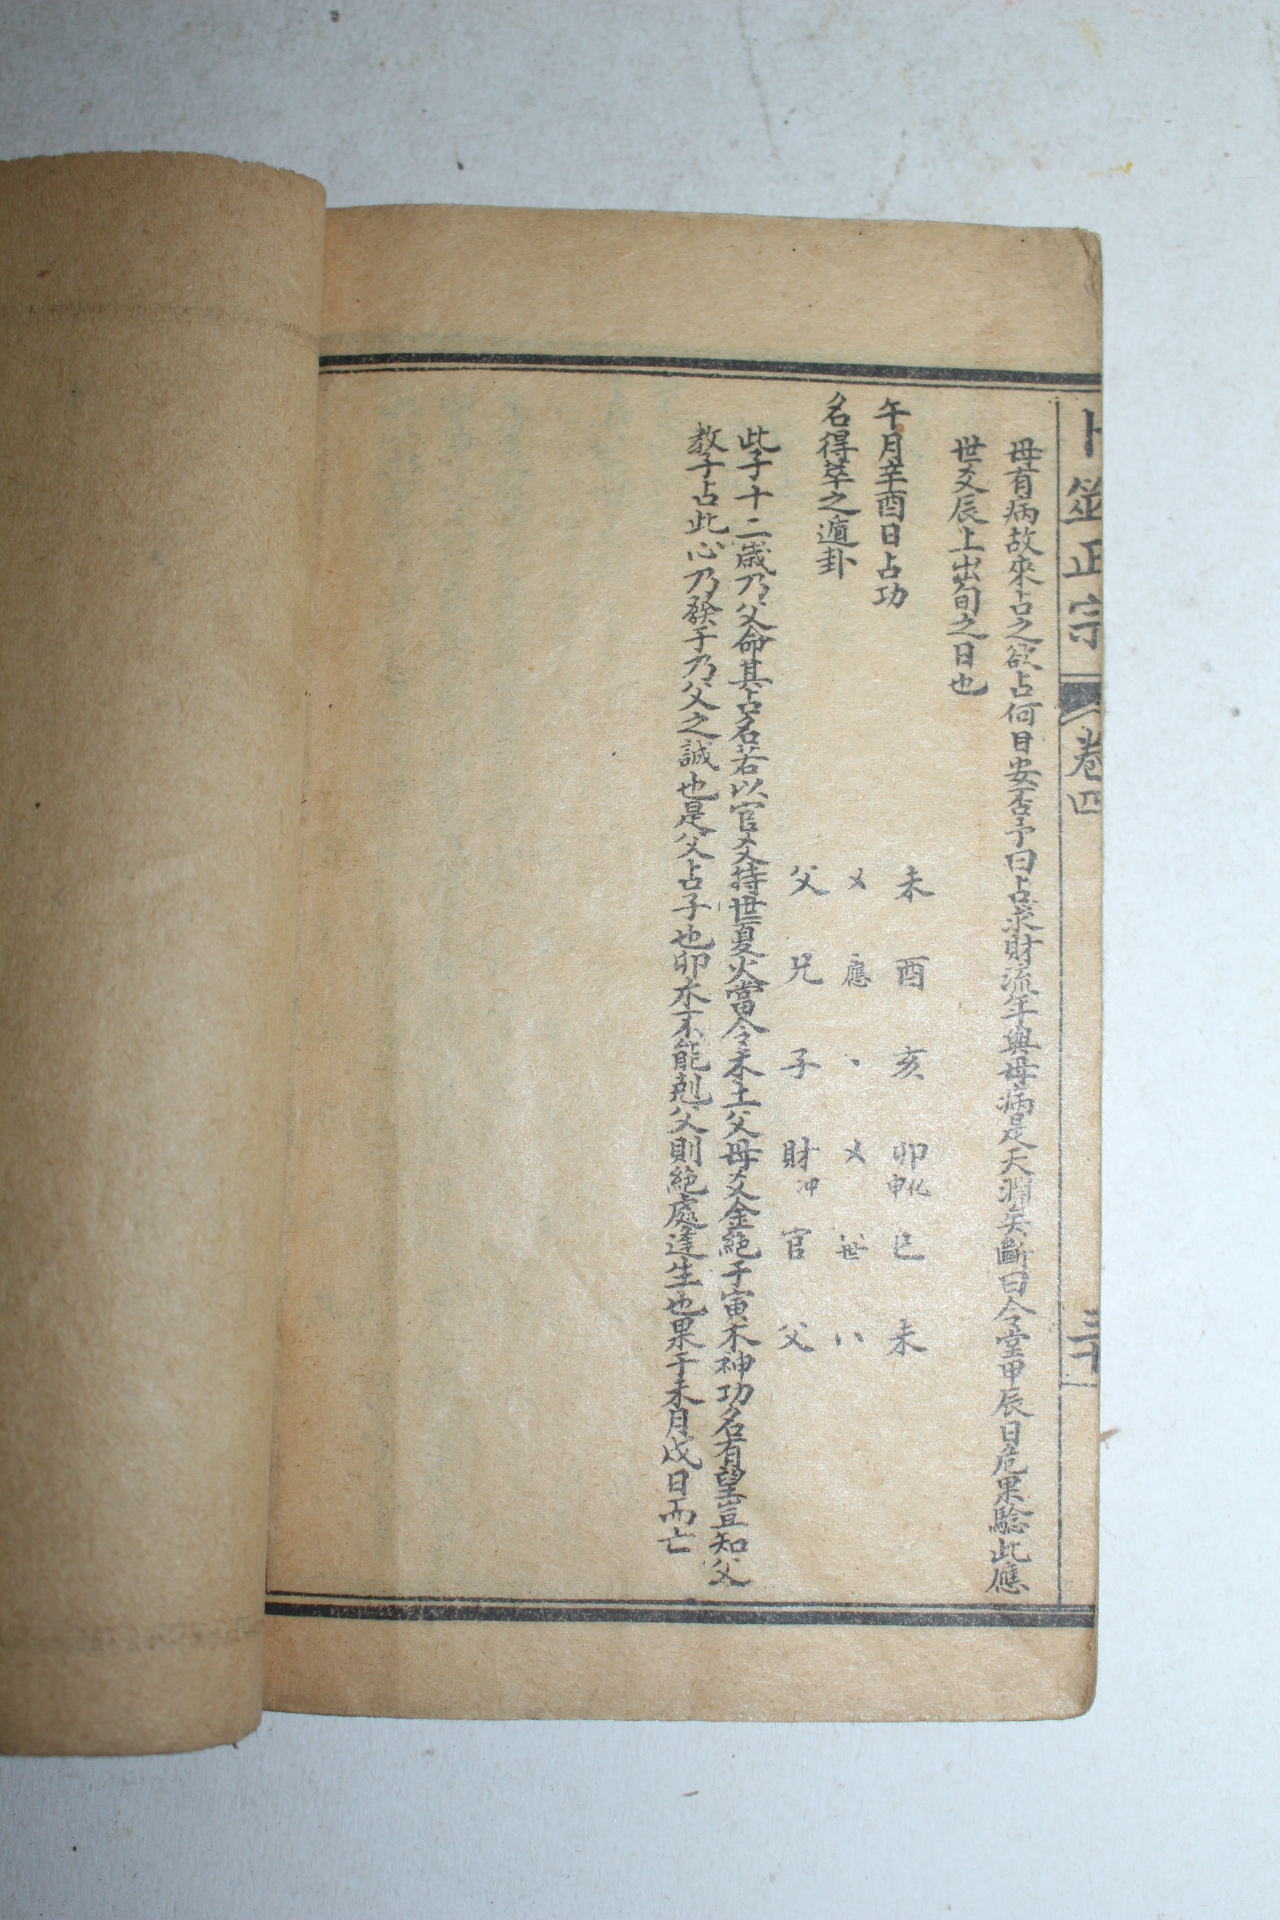 卜筮正宗 卷四 三十
母有病故來占之欲占何日安否予曰占求財流年與母病是天淵矣斷曰令堂甲辰日危果驗此應
世爻辰上出旬之日也
午月辛酉日占功
名得萃之遁卦
未 酉 亥 卯申化 巳 未
乂 應 、 乂 世 八
父 兄 子 財冲 官 父
此子十二歲乃父命其占名若以官爻持世夏火當令未土父母爻金絕于寅木神功名有望豈知父
教子占此心乃發于乃父之誠也是父占子也卯木不能剋父則絕處逢生也果于未月戊日而亡